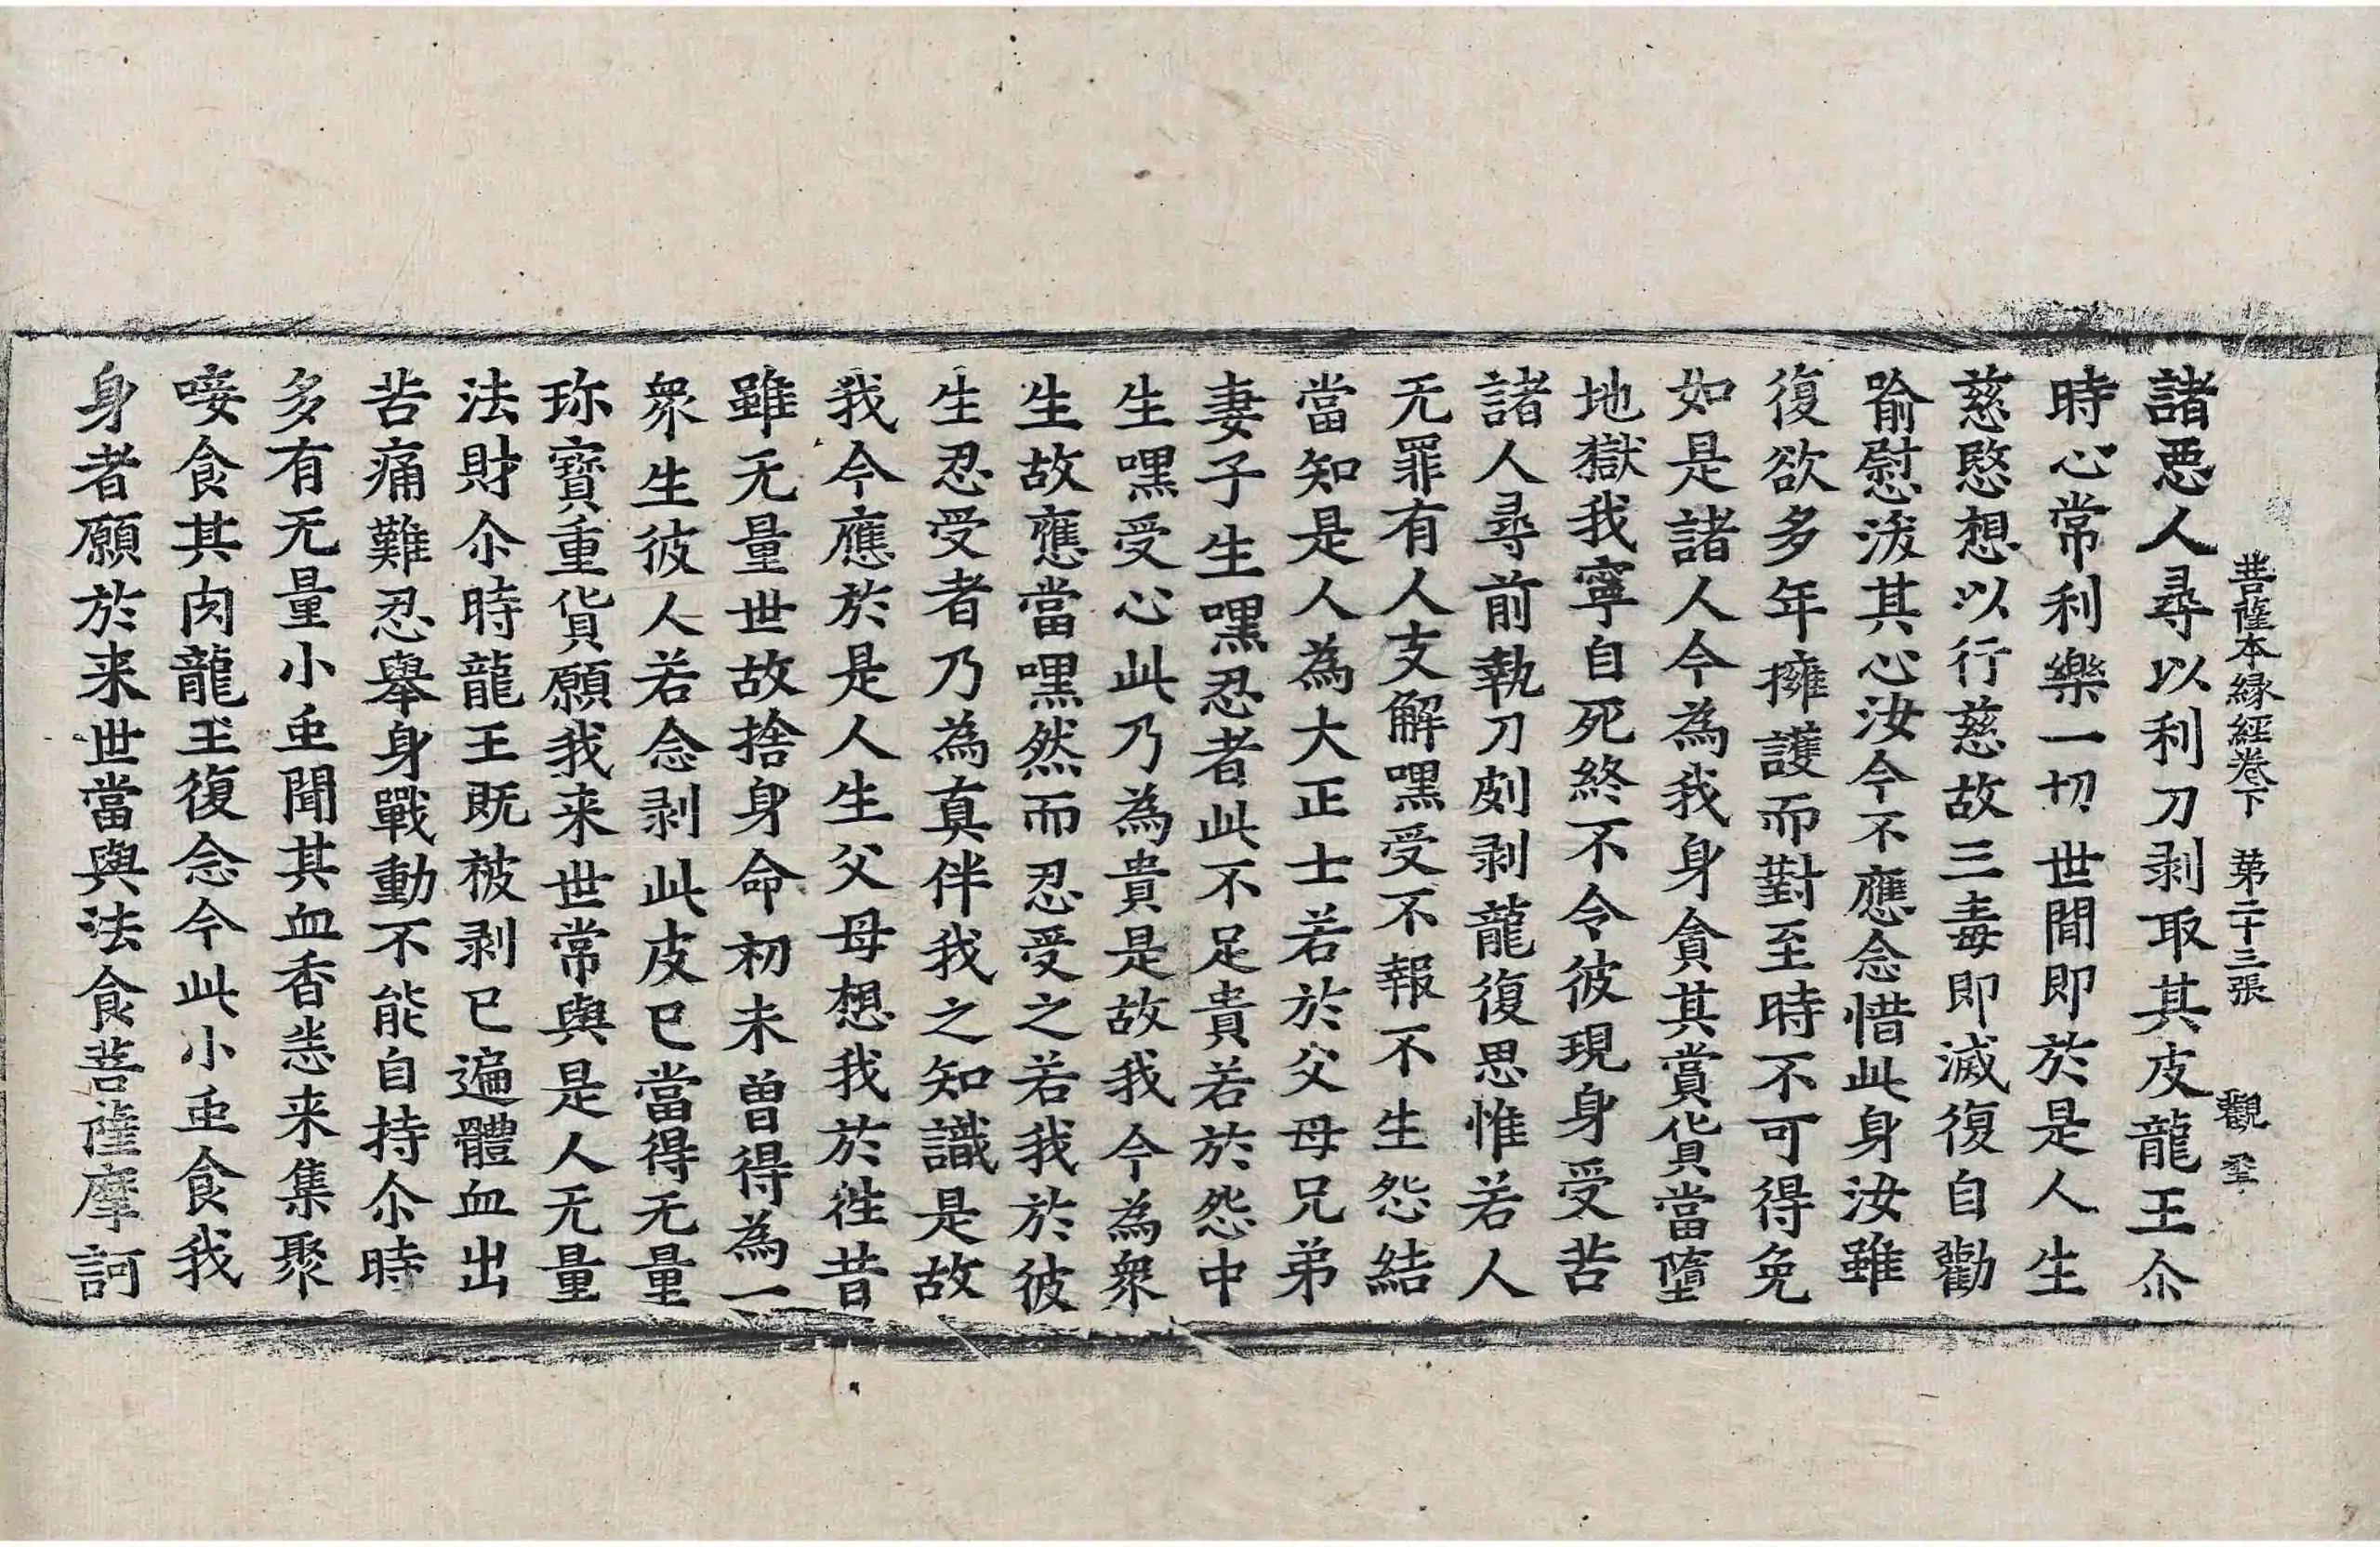 菩薩本緣經卷下　第二十三張　觀
諸惡人尋以利刀剥取其皮龍王尒
時心常利樂一切世閒即於是人生
慈愍想以行慈故三毒即滅復自勸
喻慰沷其心汝今不應念惜此身汝雖
復欲多年擁護而對至時不可得免
如是諸人今為我身貪其賞貨當墮
地獄我寧自死終不令彼現身受苦
諸人尋前執刀㓟剥龍復思惟若人
无罪有人支解嘿受不報不生怨結
當知是人為大正士若於父母兄弟
妻子生嘿忍者此不足貴若於怨中
生嘿受心此乃為貴是故我今為衆
生故應當嘿然而忍受之若我於彼
生忍受者乃為真伴我之知識是故
我今應於是人生父母想我於徃昔
雖无量世故捨身命初未曾得為一
衆生彼人若念剥此皮已當得无量
珎寶重貨願我来世常與是人无量
法財尒時龍王既被剥已遍體血出
苦痛難忍舉身戰動不能自持尒時
多有无量小䖝聞其血香悉来集聚
唼食其肉龍王復念今此小䖝食我
身者願於来世當與法食菩薩摩訶